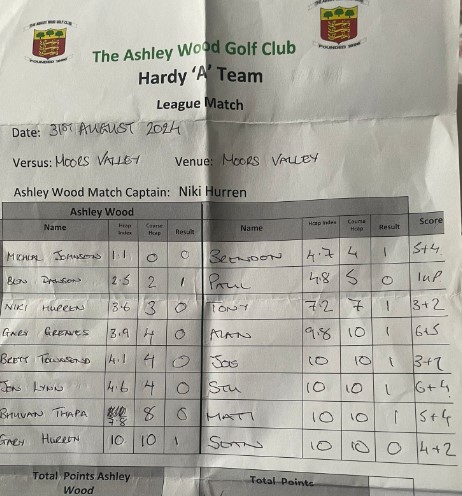 The Ashley Wood Golf Club
Hardy 'A' Team
League Match
Date: 31ST AUGUST 2024
Versus: MOORS VALLEY Venue: MOORS VALLEY
Ashley Wood Match Captain: Niki Hurren
Ashley Wood
Name Hcap Index Course Hcap Result Name Hcap Index Course Hcap Result Score
MICHAEL JOHNSON 1.1 0 0 BRENDON 4.7 4 1 5+4
BEN DAWSON 2.5 2 1 PAUL 4.8 5 0 1UP
NIKI HURREN 3.6 3 0 TONY 7.2 7 1 3+2
GARY GREAVES 3.9 4 0 ALAN 9.8 10 1 6+5
BRETT TOWNSEND 4.1 4 0 10 10 1 3+2
JON LYNN 4.6 4 0 STU 10 10 1 6+4
BHUVAN THAPA 7.8 8 0 MATT 10 10 1 5+4
GARY HURREN 10 10 1 SEAN 10 10 0 4+2
Total Points Ashley Wood Total Points